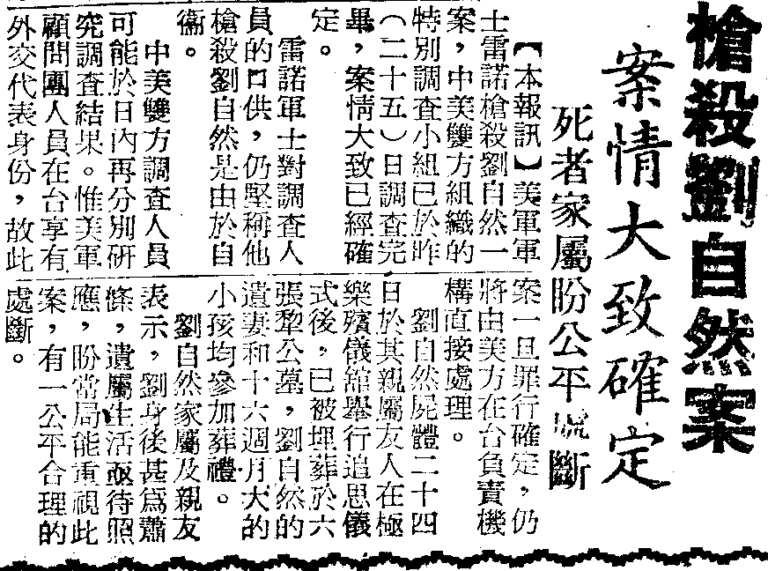 槍殺劉自然案
案情大致確定
死者家屬盼公平處斷
【本報訊】美軍軍
士雷諾槍殺劉自然一
案，中美雙方組織的
特別調查小組已於昨
（二十五）日調查完
畢，案情大致已經確
定。
雷諾軍士對調查人
員的口供，仍堅稱他
槍殺劉自然是由於自
衞。
中美雙方調查人員
可能於日內再分別研
究調查結果。惟美軍
顧問團人員在台享有
外交代表身份，故此
案一旦罪行確定，仍
將由美方在台負責機
構直接處理。
劉自然屍體二十四
日於其親屬友人在極
樂殯儀舘舉行追思儀
式後，已被埋葬於六
張犂公墓，劉自然的
遺妻和十六週月大的
小孩均參加葬禮。
劉自然家屬及親友
表示，劉身後甚爲蕭
條，遺屬生活亟待照
應，盼當局能重視此
案，有一公平合理的
處斷。